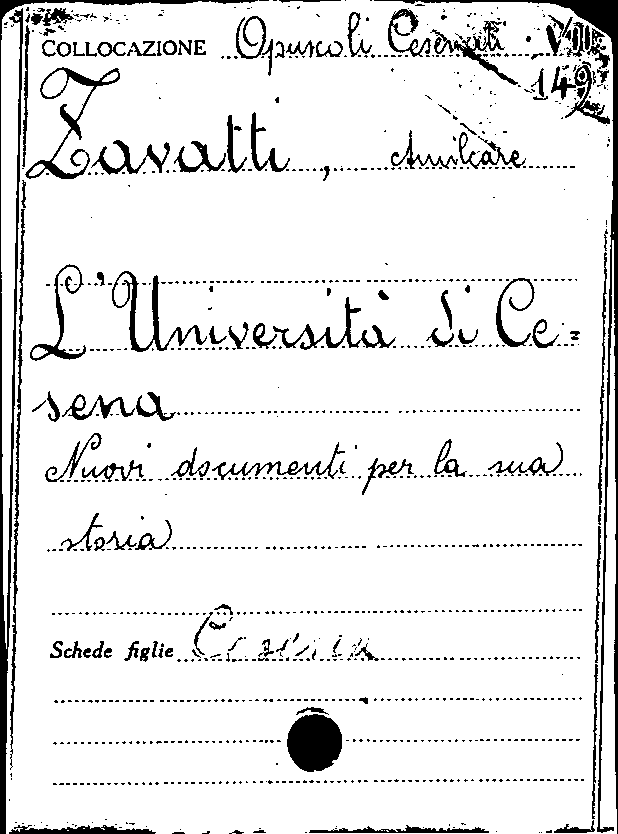 COLLOCAZIONE Opuscoli Cesenati . VIII
149
Zavatti, Amilcare
L'Università di Ce=
sena
Nuovi documenti per la sua
storia
Schede figlie Cesena